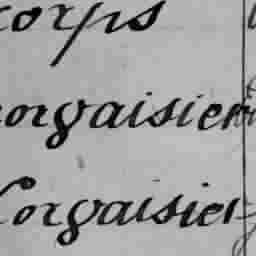 corps
corgaisier
Corgaisier